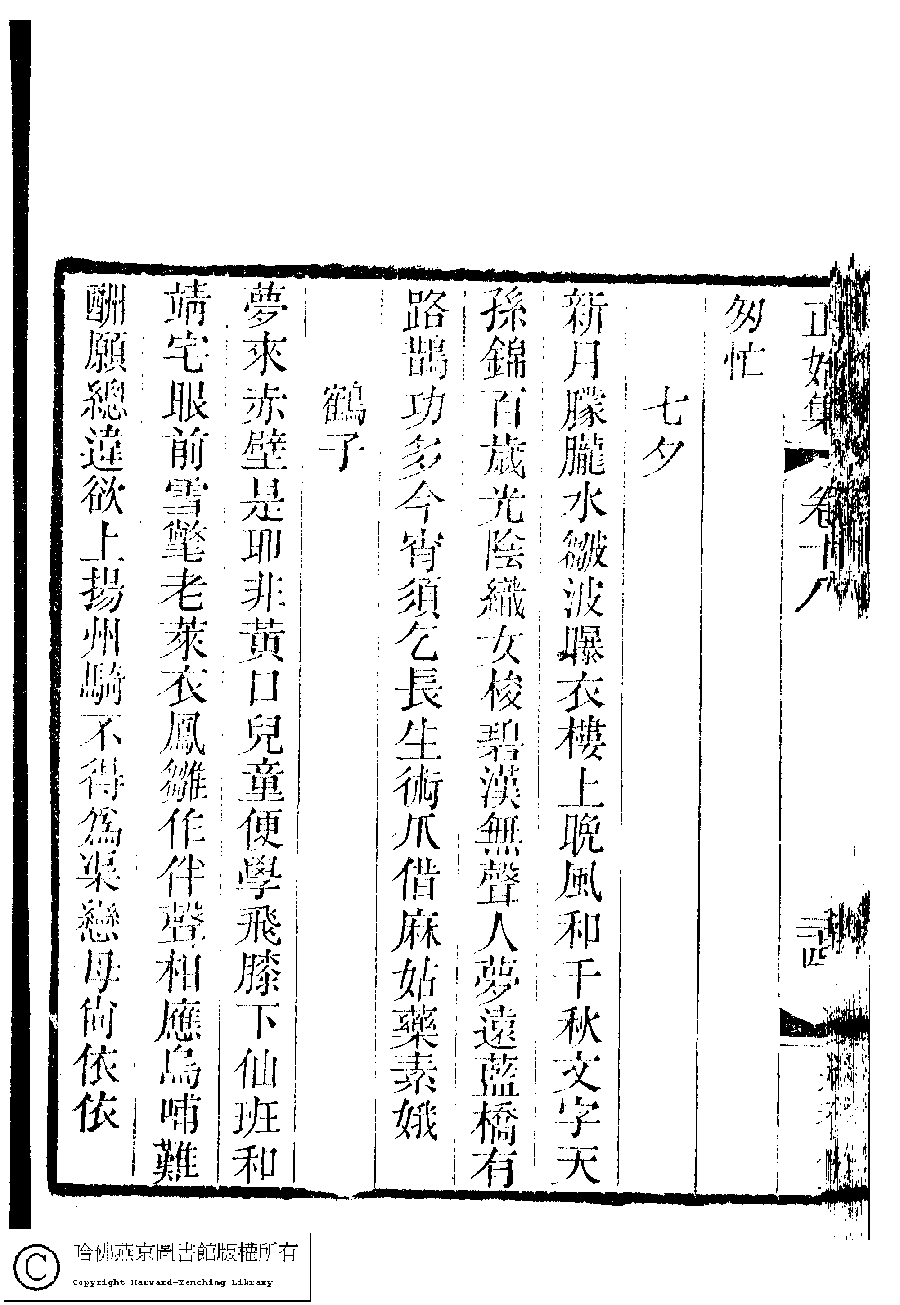 正始集 卷十八
匆忙
七夕
新月朦朧水皺波曝衣樓上晚風和千秋文字天
孫錦百歲光陰織女梭碧漢無聲人夢遠藍橋有
路鵲功多今宵須乞長生術爪借麻姑藥素娥
鶴子
夢來赤壁是耶非黃口兒童便學飛膝下仙班和
靖宅眼前雪氅老萊衣鳳雛作伴聲相應烏哺難
酬願總違欲上揚州騎不得為渠戀母尙依依
哈佛燕京圖書館版權所有
Copyright Harvard-Yenching Library